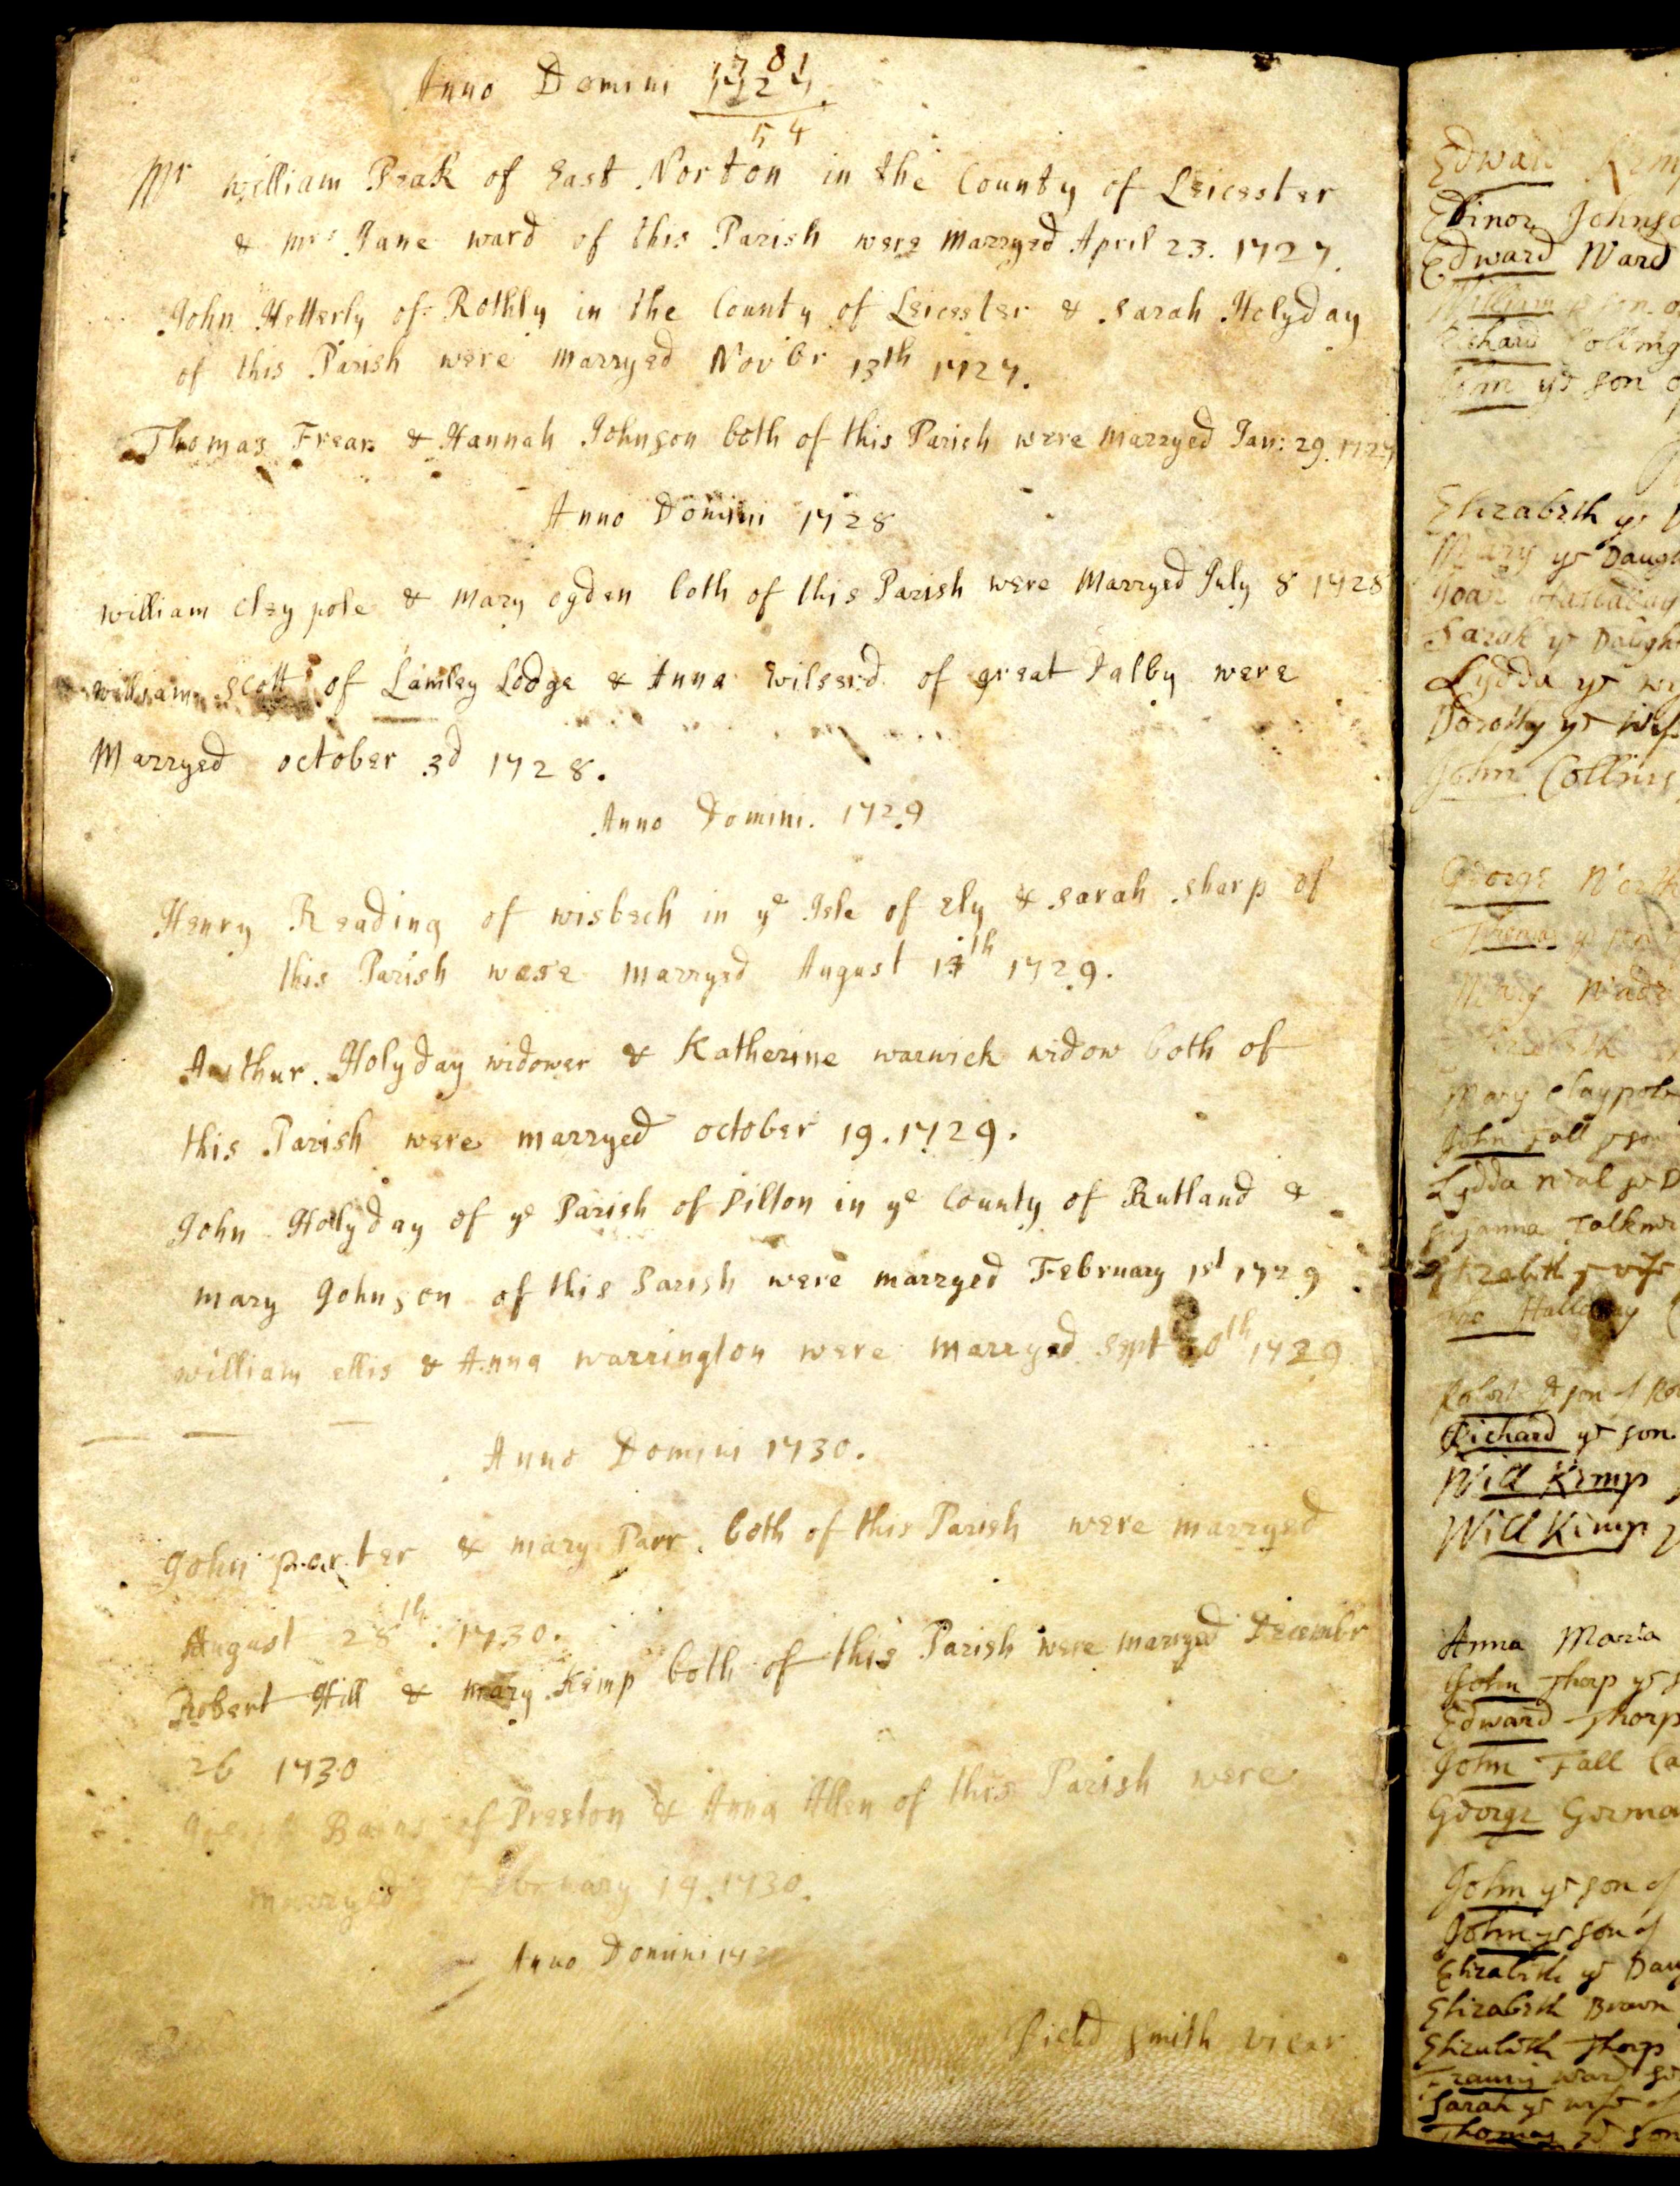 Anno Domini 1727
81
54
Mr william Peak of East Norton in the County of Leicester
& mrs Jane ward of this Parish were Marryed April 23. 1727.
John Hetterly of Rothly in the County of Leicester & Sarah Holyday
of this Parish were Marryed Novbr 13th 1727.
Thomas Frear & Hannah Johnson both of this Parish were Marryed Jan: 29. 1727
Anno Domini 1728
william Claypole & Mary Ogden both of this Parish were Marryed July 8 1728
william Scott of Lamley Lodge & Anna of great Dalby were
Marryed october 3d 1728.
Anno Domini. 1729
Henry Reading of wisbech in ye Isle of Ely & Sarah Sharp of
this Parish were Marryed August th 1729.
Arthur Holyday widower & Katherine warwick widow both of
this Parish were marryed october 19. 1729.
John Holyday of ye Parish of Pilton in ye County of Rutland &
mary Johnson of this Parish were marryed February 1st 1729
william ellis & Anna warrington were marryed Sept th 1729
Anno Domini 1730.
John porter & mary Parr both of this Parish were marryed
August 28th. 1730.
Robert Hill & mary Kemp both of this Parish were marryed Decembr
26 1730
of Preston & Anna Allen of this Parish were
marryed February 14. 1730.
Anno Domini 17
Field Smith vicar
Edward
Elinor Johnso
Edward Ward
William ye son o
Richard Colling
John ye son o
Elizabeth ye D
Mary ye Daugh
Sarah ye Daugh
Lydda ye wi
Dorothy ye Wif
John Collins
George
Thomas ye son
Mary Wade
Elizabeth
Mary Claypole
John Fall ye son
Lydda ye D
Susanna
Elizabeth ye wife
Robert ye son of Ro
Richard ye son
Will Kemp
Will Kemp
Anna Maria
John Thorp ye s
Edward Thorp
John Fall
George Germa
John ye son of
John ye son of
Elizabeth ye Dau
Elizabeth Brown
Elizabeth Thorp
ward
Sarah ye wife of
Thomas ye son